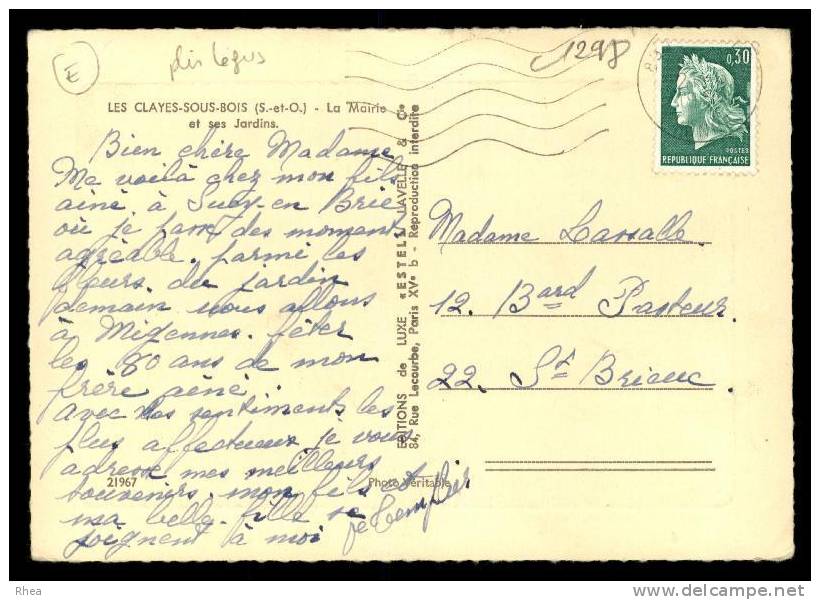 E
plis légers
1298
0,30
POSTES
REPUBLIQUE FRANÇAISE
LES CLAYES-SOUS-BOIS (S.-et-O.) - La Mairie
et ses Jardins.
Bien chère Madame
Me voilà chez mon fils
ainé à Sucy en Brie
où je passe des moments
agréable. parmi les
fleurs du jardin
demain nous allons
à Migennes. fêter
les 80 ans de mon
frère aéné
avec mes sentiments les
plus affectueux je vous
adresse mes meilleurs
souvenirs. mon fils et
ma belle-fille se
joignent à moi
21967
Photo Véritable
EDITIONS de LUXE "ESTEL" LAVELLE & Cie
84, Rue Lecourbe, Paris XVe b - Reproduction interdite
Madame Lassalle
12. Bard Pasteur
22. St Brieuc
Rhea
delcampe.net